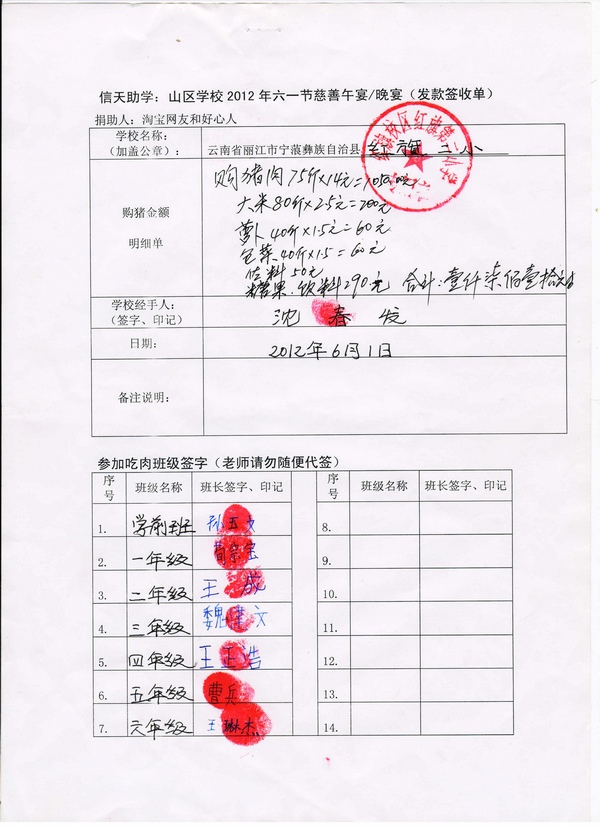 信天助学：山区学校2012年六一节慈善午宴/晚宴（发款签收单）
捐助人：淘宝网友和好心人
学校名称：
（加盖公章）：
云南省丽江市宁蒗彝族自治县 红旗 二小
购猪金额
明细单
购猪肉75斤×14元=1050元
大米80斤×2.5元=200元
萝卜40斤×1.5元=60元
包菜40斤×1.5=60元
佐料50元
糖果.饮料290元 合计:壹仟柒佰壹拾元
学校经手人：
（签字、印记）
沈春发
日期：
2012年6月1日
备注说明：
参加吃肉班级签字（老师请勿随便代签）
序号 班级名称 班长签字、印记 序号 班级名称 班长签字、印记
1. 学前班 孙玉文 8.
2. 一年级 宝 9.
3. 二年级 王成 10.
4. 三年级 魏文 11.
5. 四年级 王正浩 12.
6. 五年级 曹兵 13.
7. 六年级 王琳杰 14.